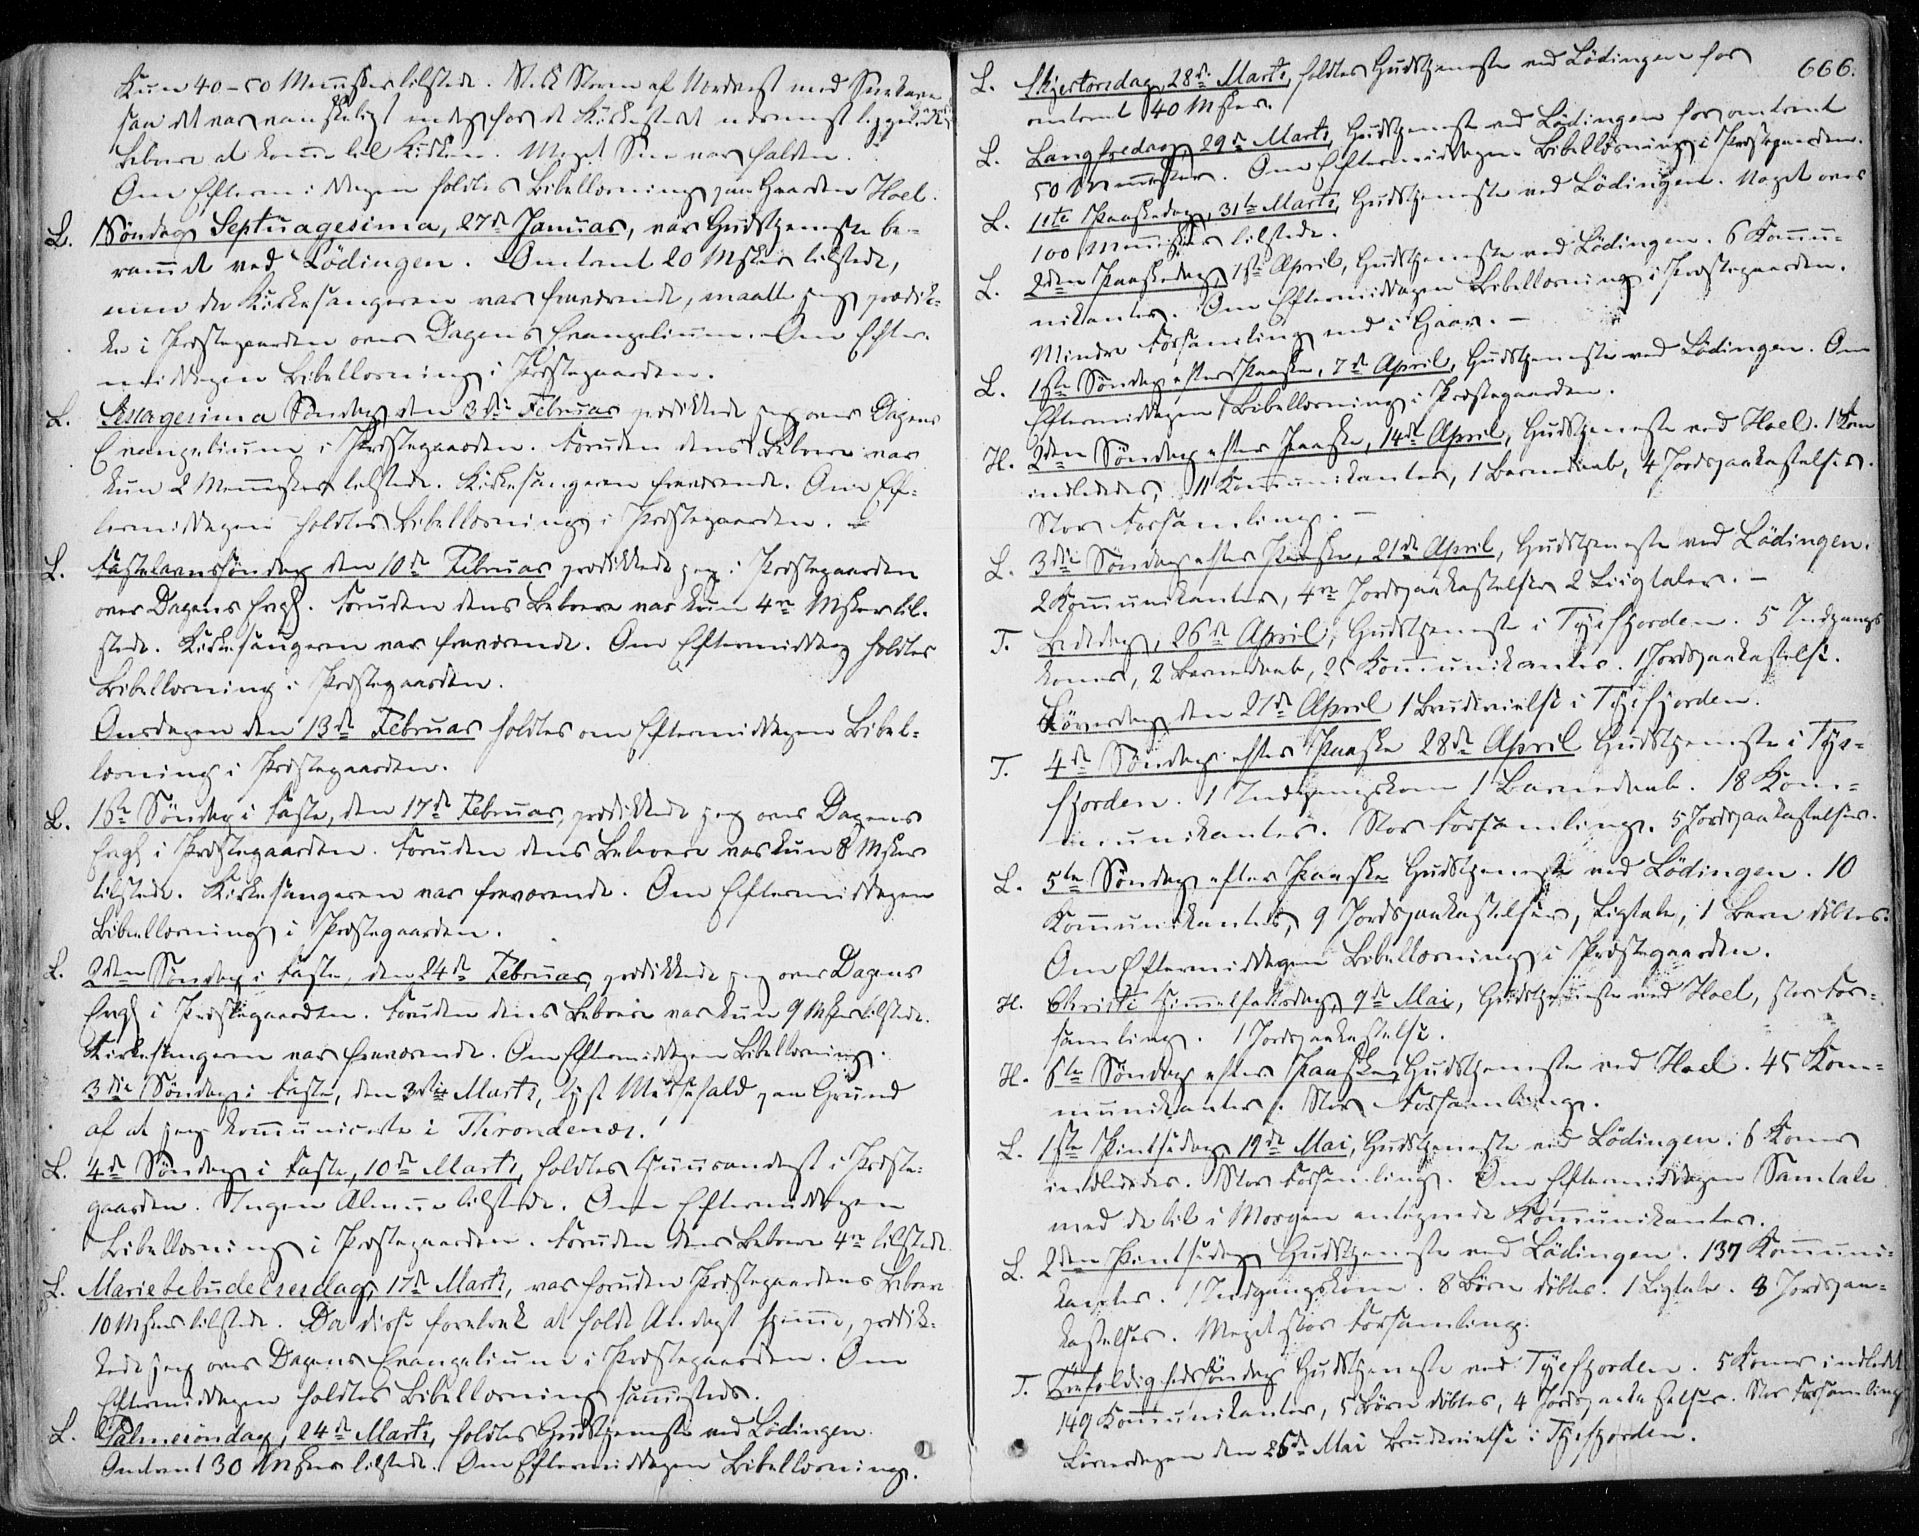 Kun 40-50 Mennesker tilstede. Stærk Storm af Nordvest med Sneekave
saa det var vanskeligt endog for de Kirkestedet nærmest liggende
Beboere at komme til Kirken. Meget Snee var falden.
Om Eftermiddagen holdtes Bibellæsning paa Gaarden Hoel.
L. Søndag Septuagesima, 27de Januar, var Gudstjeneste be-
rammet ved Lödingen. Omtrent 20 Msker tilstede,
men da Kirkesangeren var fraværende, maatte jeg prædik-
ke i Præstegaarden over Dagens Evangelium. Om Efter-
middagen Bibellæsning i Præstegaarden.
L. Sexagesima Søndag den 3die Februar prædikede jeg over Dagens
Evangelium i Præstegaarden. Foruden dens Beboere var
kun 2 Mennesker tilstede. Kirkesangeren fraværende. Om Ef-
termiddagen holdtes Bibellæsning i Præstegaarden. -
L. Fastelavnssøndag den 10de Februar prædikede jeg i Præstegaarden
over Dagens Evgl. Foruden dens Beboere var kun 4re Msker til-
stede. Kirkesangeren var fraværende. Om Eftermiddag holdtes
Bibellæsning i Præstegaarden.
Onsdagen den 13de Februar holdtes om Eftermiddagen Bibel-
læsning i Præstegaarden.
L. 1ste Søndag i Faste, den 17de Februar, prædikede jeg over Dagens
Evgl i Præstegaarden. Foruden dens Beboere var kun 8 Msker
tilstede. Kirkesangeren var fraværende. Om Eftermiddagen
Bibellæsning i Præstegaarden.
L. 2den Søndag i Faste, den 24de Februar, prædikede jeg over Dagens
Evgl i Præstegaarden. Foruden dens Beboere var kun 9 Msker tilstede.
Kirkesangeren var fraværende. Om Eftermiddagen Bibellæsning.
3die Søndag i Faste, den 3die Marts, lyst Messefald paa Grund
af at jeg kommunicerte i Throndenæs.
L. 4de Søndag i Faste, 10de Marts, holdtes Huusandagt i Præste-
gaarden. Ingen Almue tilstede. Om Eftermiddagen
Bibellæsning i Præstegaarden. Foruden dens Beboere 4re tilstede
L. Mariebebudelsesdag, 17de Marts, var foruden Præstegaardens Beboere
10 Msker tilstede. Da disse foretrak at holde Andagt hjemme, prædik-
kede jeg over Dagens Evangelium i Præstegaarden. Om
Eftermiddagen holdtes Bibellæsning sammesteds.
L. Palmesøndag, 24de Marts, holdtes Gudstjeneste ved Lödingen.
Omtrent 30 Msker tilstede. Om Eftermiddagen Bibellæsning.
666.
L. Skjertorsdag, 28de Marts, holdtes Gudstjeneste ved Lödingen for
omtrent 40 Msker.
L. Langfredag, 29de Marts, Gudstjeneste ved Lödingen for omtrent
50 Mennesker. Om Eftermiddagen Bibellæsning i Præstegaarden.
L. 1ste Paaskedag, 31te Marts, Gudstjeneste ved Lödingen. Noget over
100 Mennesker tilstede.
L. 2den Paaskedag, 1ste April, Gudstjeneste ved Lödingen. 6 Kommu-
nikanter. Om Eftermiddagen Bibellæsning i Præstegaarden.
Mindre Forsamling end i Gaar. -
L. 1ste Søndag efter Paaske, 7de April, Gudstjeneste ved Lödingen. Om
Eftermiddagen Bibellæsning i Præstegaarden.
H. 2den Søndag efter Paaske, 14de April, Gudstjeneste ved Hoel. 1 Kone
indlededes, 11 Kommunikanter, 1 Barnedaab, 4 Jordspaakastelser.
Stor Forsamling. -
L. 3die Søndag efter Paaske, 21de April, Gudstjeneste ved Lödingen.
2 Kommunikanter, 4re Jordspaakastelser 2 Liigtaler. -
T. Bededag, 26de April, Gudstjeneste i Tysfjorden. 5 Indgangs
koner, 2 Barnedaab, 25 Kommunikanter. 1 Jordspaakastelse.
Løverdag den 27de April 1 Brudevielse i Tysfjorden.
T. 4de Søndag efter Paaske 28de April Gudstjeneste i Tys-
fjorden. 1 Indgangskone 1 Barnedaab. 18 Kom-
munikanter. Stor Forsamling. 5 Jordspaakastelser.
L. 5te Søndag efter Paaske Gudstjeneste ved Lödingen. 10
Kommunikanter, 9 Jordspaakastelser, Ligtale, 1 Barn döbtes.
Om Eftermiddagen Bibellæsning i Præstegaarden.
H. Christi Himmelfartsdag, 9de Mai, Gudstjeneste ved Hoel, stor For-
samling. 1 Jordspaakastelse.
H. 6te Søndag efter Paaske, Gudstjeneste ved Hoel. 45 Kom-
munikanter. Stor Forsamling.
L. 1ste Pintsedag 19de Mai, Gudstjeneste ved Lödingen. 6 Koner
indlededes. Stor Forsamling. Om Eftermiddagen Samtale
med de til i Morgen antegnede Kommunikanter.
L. 2den Pintsedag Gudstjeneste ved Lödingen. 137 Kommuni-
kanter. 1 Indgangskone. 8 Børn döbtes. 1 Ligtale. 8 Jordspaa-
kastelser. Meget stor Forsamling.
T. Trefoldighedssöndag Gudstjeneste ved Tysfjorden. 5 Koner indledet
149 Kommunikanter, 5 Børn döbtes, 4 Jordspaakastelser. Stor Forsamling
Løverdagen den 25de Mai Brudevielse i Tysfjorden.